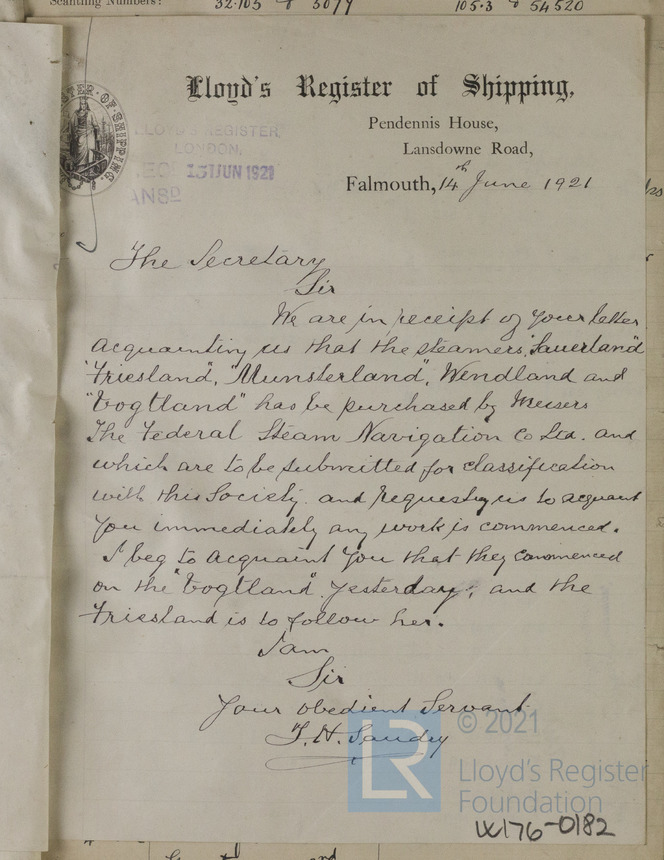 Scantling Numbers: 32·105 & 3079 105·3 & 54520
Lloyd's Register of Shipping,
Pendennis House,
Lansdowne Road,
Falmouth, 14th June 1921
LLOYD'S REGISTER,
LONDON.
REC 15 JUN 1921
ANSD
The Secretary
Sir
We are in receipt of your letter
acquainting us that the steamers "Sauerland"
"Friesland", "Munsterland", Wendland and
"Vogtland" has be purchased by Messers
The Federal Steam Navigation Co Ltd. and
which are to be submitted for classification
with this Society. and requesting us to acquaint
you immediately any work is commenced.
I beg to acquaint you that they commenced
on the "Vogtland" yesterday, and the
Friesland is to follow her.
I am
Sir
Your obedient Servant
© 2021
LR
Lloyd's Register
Foundation
W176-0182